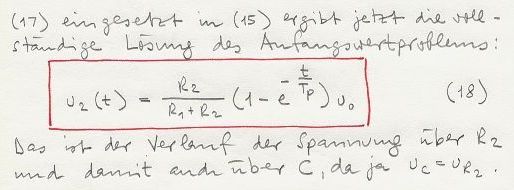 (17) eingesetzt in (15) ergibt jetzt die voll-
ständige Lösung des Anfangswertproblems:
u₂(t) = R₂/(R₁+R₂) (1 - e^(-t/Tp)) u₀ (18)
Das ist der Verlauf der Spannung über R₂
und damit auch über C, da ja u_C = u_R₂.